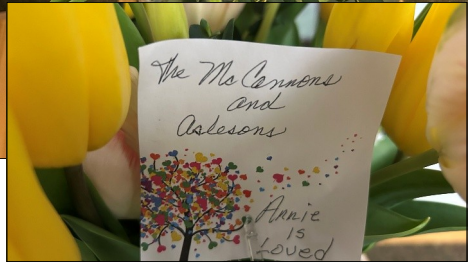 The McCannons
and
Aslesons
Annie
is
Loved